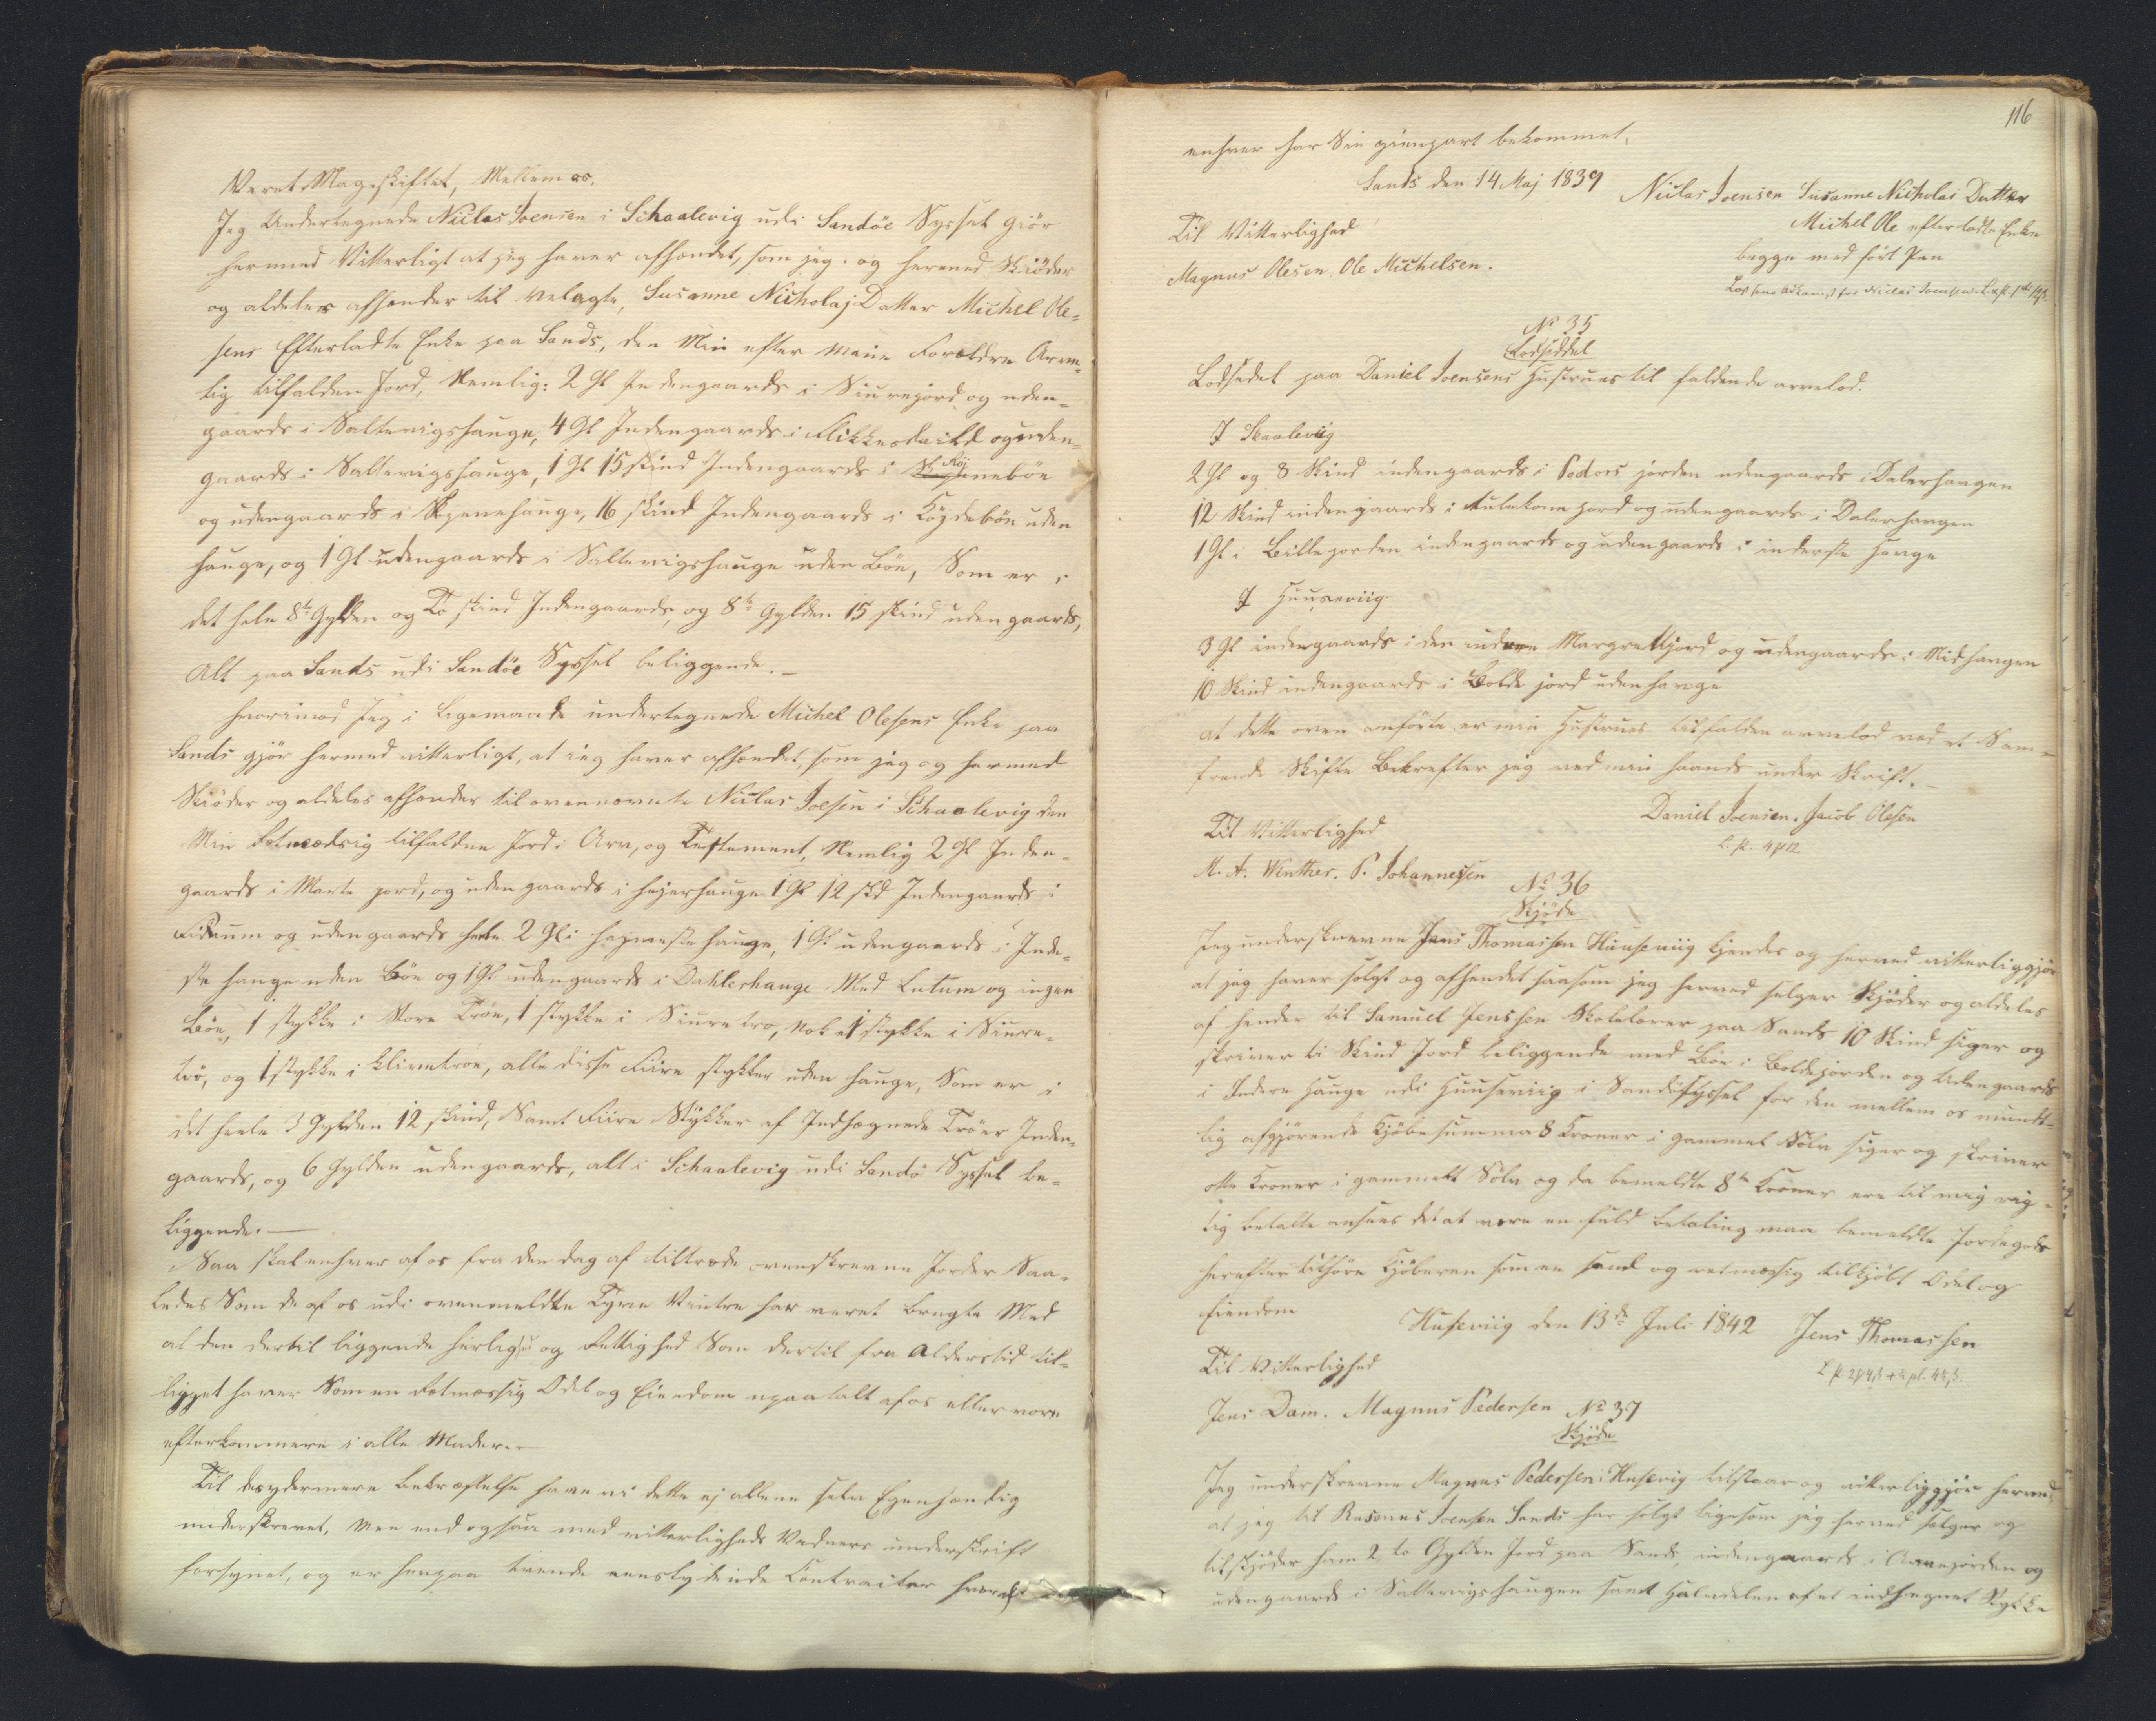 Været Mageskiftet, Mellem os.
Jeg Undertegnede Niclas Joensen i Schaalevig udi Sandöe Syssel giör
hermed Vitterligt at jeg haver afhændet, som jeg og hermed Skiöder
og aldeles afhænder til velagte, Susanne Nicholaj Datter Michel Ole-
sens Efterladte Enke paa Sands, den Min efter mine Forældre Arve-
lig tilfalden Jord, Nemlig: 2 Gl Indengaards i Niurejord og uden-
gaards i Saltevigshauge, 4 Gl Indengaards i og uden-
gaards i Saltevigshauge, 1 Gl 15 skind Indengaards i
og udengaards i hauge, 16 skind Indengaards i uden
hauge, og 1 Gl udengaards i Saltevigshauge uden Böe, Som er i
det hele 8te Gylden og To skind Indengaards, og 8te Gylden 15 skind uden gaards,
Alt paa Sands udi Sandöe Syssel beliggende.-
hvorimod Jeg i ligemaade undertegnede Michel Olesens Enke paa
Sands gjör hermed vitterligt, at ieg haver afhændet, som jeg og hermed
Skiöder og aldeles afhænder til ovennævnte Niclas Joesen i Schaalevig den
Min tilfaldne Jord i Arv, og Testement, Nemlig 2 Gl Inden-
gaards i jord, og uden gaards i hauge 1 Gl 12 skd Indengaards i
og uden gaards 2 Gl i hauge, 1 Gl udengaards i Inder-
ste hauge uden Böe og 1 Gl udengaards i Dahlerhauge Med Lutum og ingen
Böe, 1 stykke i Store Tröe, 1 stykke i Niure tro, Nok et stykke i Niure-
trö, og 1 stykke i tröe, alle disse Fiire stykker uden hauge, Som er i
det heele 3 Gylden 12 skind, Samt Fiire Stykker af Indhægnede Tröer Inden-
gaards, og 6 Gylden udengaards, alt i Schaalevig udi Sandö Syssel be-
liggende.-
Saa skal enhver af os fra den dag af tiltræde ovenskrevne Jorder Saa-
ledes Som de af os udi ovenmeldte Tyve Vintre har været brugte Med
al den dertil liggende herlighed og Rettighed Som dertil fra Alderstid til-
ligget haver Som en Retmæssig Odel og Eiendom upaatalt af os eller vore
efterkommere i alle Maader.-
Til desydermere bekræftelse have vi dette ej allene selv Egenhændig
underskrevet, Men end ogsaa med vitterligheds Vidners underskrift
forsynet, og er herpaa tvende eenslydende Contracter hvoraf
116
enhver har Sin gienpart bekommet.
Sands den 14 Maj 1839
Niclas Joensen Susanne Nicholai Datter
Michel Ole efterladte Enke
begge med fört Pen
Til Vitterlighed
Magnus Olesen. Ole Michelsen.
No 35
Lodseddel
Lodsedel paa Daniel Joensens Hustrues til faldende arvelod.
I Skaaleviig
2 Gl og 8 Skind indengaards i Podors jorden udengaards i Dalerhaugen
12 Skind indengaards i jord og udengaards i Dalerhaugen
1 Gl i Billejorden indengaards og udengaards i inderste Hauge
I Huuseviig
3 Gl indengaards i den indere Margretkjord og udengaards i Midhaugen
10 Skind indengaards i Bolde jord uden hauge
at dette oven anförte er min Hustrues tilfalden arvelod ved et Sam-
frende Skifte Bekrefter jeg ved min Haands under Skrift.-
Daniel Joensen. Jacob Olesen
Til Vitterlighed
M. A. Winther. P. Johannesen
No 36
Skjöde
Jeg underskrevne Jens Thomassen Huuseviig kjendes og herved vitterliggjör
at jeg haver solgt og afhendet saasom jeg herved selger Skjöder og aldeles
af hender til Samuel Jenssen Skolelærer paa Sands 10 Skind siger og
skriver ti Skind Jord beliggende med Böe i Boldejorden og Udengaards
i Indere Hauge udi Huuseviig i Sandösyssel for den mellem os mundt-
lig afgjörende kjöbe summa 8 Kroner i gammel Sölv siger og skriver
otte Kroner i gammelt Sölv og da bemeldte 8te Kroner ere til mig rig-
tig betalte ansees det at være en fuld betaling maa bemeldte Jordegods
herefter tilhöre Kjöberen som en sand og retmæssig tilkjöbt Odel og
Eiendom
Huseviig den 13de Juli 1842
Jens Thomassen
Til Vitterlighed
Jens Dam. Magnus Pedersen
No 37
Skjöde
Jeg underskrevne Magnus Pedersen i Husevig tilstaar og vitterliggjör herved,
at jeg til Rasmus Joensen Sands har solgt ligesom jeg herved sælger og
tilskjöder ham 2 to Gylden Jord paa Sands, indengaards i og
udengaards i Saltevigshaugen samt Halvdelen af et indhegnet Stykke